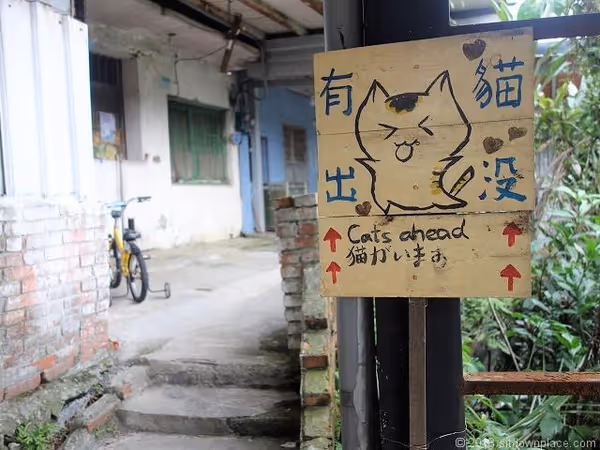 有 貓
出 没
Cats ahead
猫がいます
sitdownplace.com